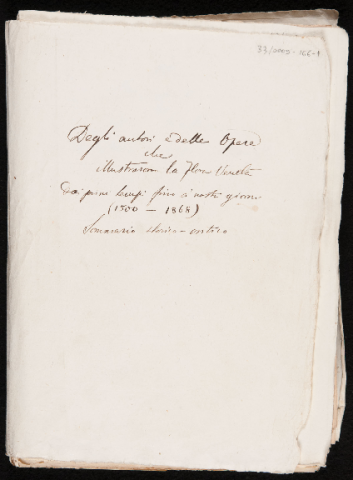 Degli autori e delle Opere
che
illustrarono la Flora Veneta
dai primi tempi fino a' nostri giorni
(1500 — 1868)
Sommario storico-critico